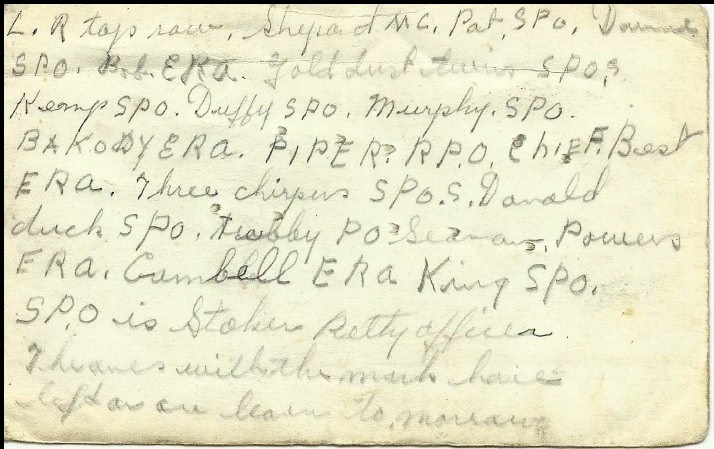 L. R top row, Shepard MC. Pat, SPO.
SPO. Bob. ERA. Golddust twins SPO,S
Kemp SPO. Duffy SPO. Murphy. SPO.
BAKODY ERA. PIPER. R.P.O. CHIEF. Best
ERA. Three chirpers SPO.S. Donald
duck SPO. tubby PO Seaman. Powers
ERA. Cambell ERA King SPO.
SP.O is Stoker Petty officer
The ones with the mark have
left or are leaving to morrow